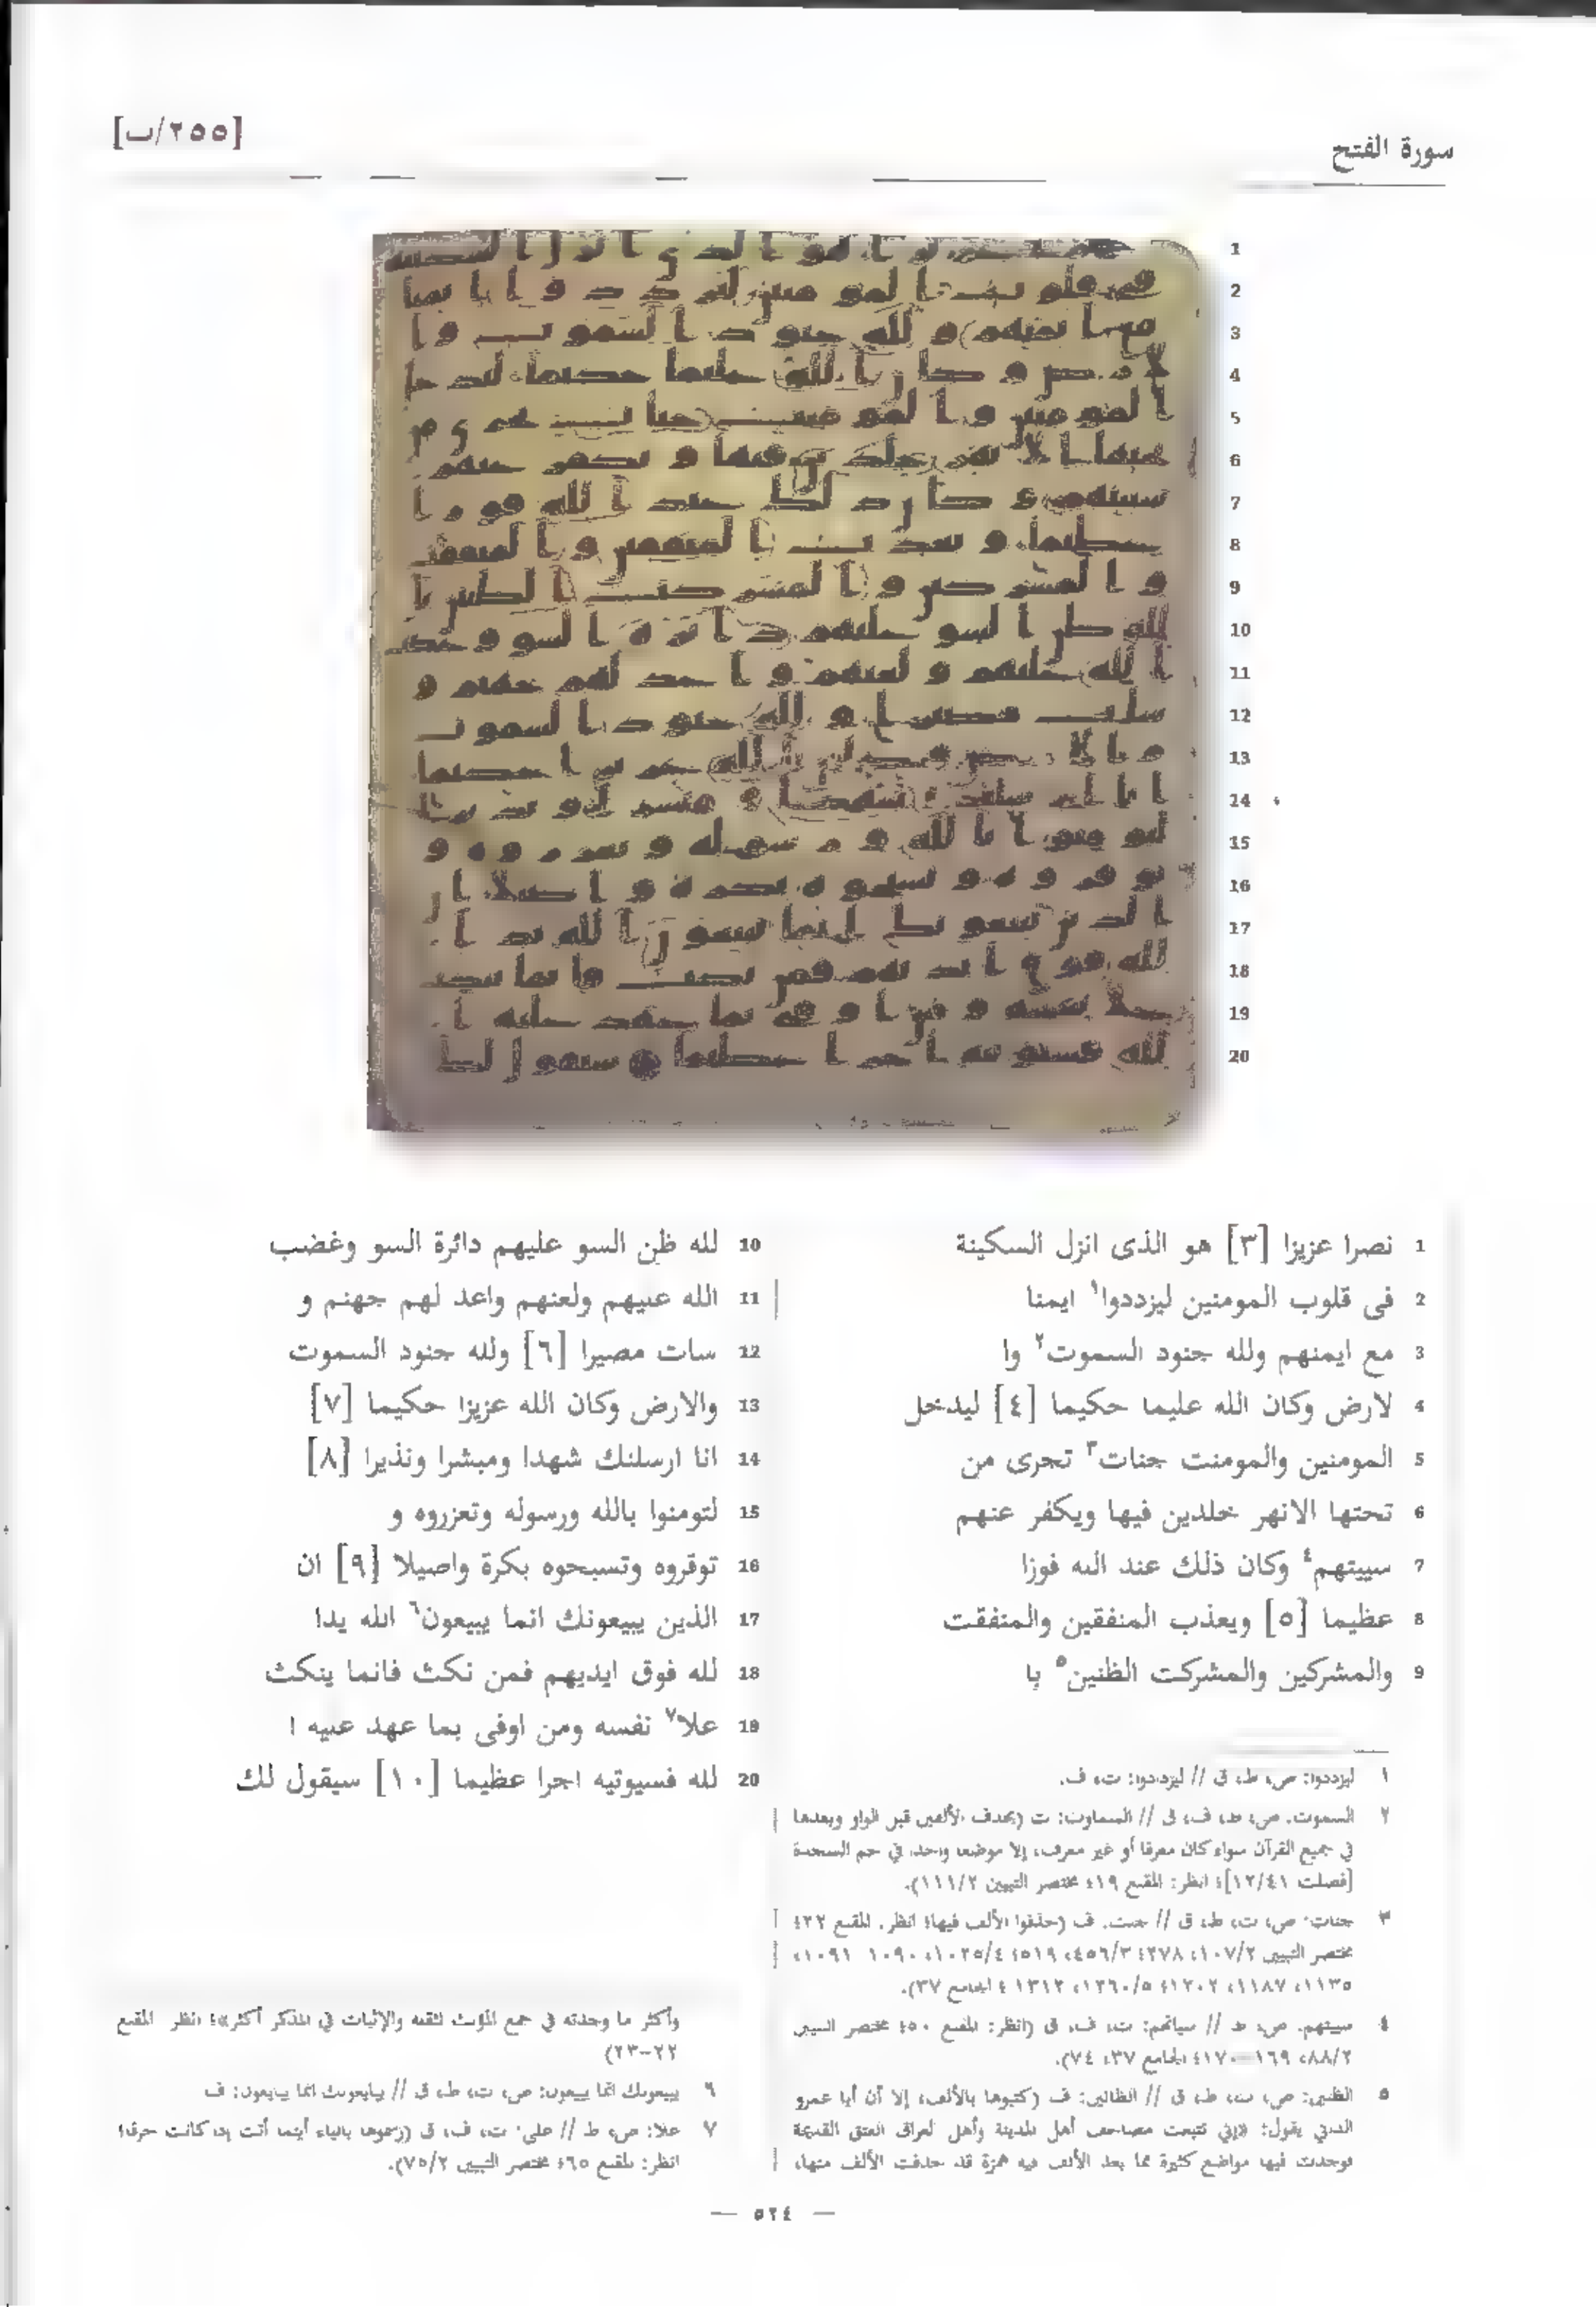 [٢٥٥/ب]
سورة الفتح
1 نصرا عزيزا [٣] هو الذى انزل السكينة
2 فى قلوب المومنين ليزددوا١ ايمنا
3 مع ايمنهم ولله جنود السموت٢ وا
4 لارض وكان الله عليما حكيما [٤] ليدخل
5 المومنين والمومنت جنات٣ تجرى من
6 تحتها الانهر خلدين فيها ويكفر عنهم
7 سييتهم٤ وكان ذلك عند الله فوزا
8 عظيما [٥] ويعذب المنفقين والمنفقت
9 والمشركين والمشركت الظنين٥ با
10 لله ظن السو عليهم دائرة السو وغضب
11 الله عليهم ولعنهم واعد لهم جهنم و
12 سات مصيرا [٦] ولله جنود السموت
13 والارض وكان الله عزيزا حكيما [٧]
14 انا ارسلنك شهدا ومبشرا ونذيرا [٨]
15 لتومنوا بالله ورسوله وتعزروه و
16 توقروه وتسبحوه بكرة واصيلا [٩] ان
17 الذين يبيعونك انما يبيعون٦ الله يدا
18 لله فوق ايديهم فمن نكث فانما ينكث
19 علا٧ نفسه ومن اوفى بما عهد عليه ا
20 لله فسيوتيه اجرا عظيما [١٠] سيقول لك
١ ليزددوا: ص، ط، ق // ليزدادوا: ت، ف.
٢ السموت: ص، ط، ف، ق // السماوت: ت (بحذف الألفين قبل الواو وبعدها
في جميع القرآن سواء كان معرفا أو غير معرف، إلا موضعا واحدا في حم السجدة
[فصلت ١٢/٤١]؛ انظر: المقنع ١٩؛ مختصر التبيين ١١١/٢).
٣ جنات: ص، ت، ط، ق // جنت: ف (حذفوا الألف فيها؛ انظر: المقنع ٢٢؛
مختصر التبيين ١٠٧/٢، ٢٧٨؛ ٤٥٦/٣، ٥١٩؛ ١٠٢٥/٤، ١٠٩٠، ١٠٩١،
١١٣٥، ١١٨٧، ١٢٠٢؛ ١٢٦٠/٥، ١٣١٢؛ الجامع ٣٧).
٤ سييتهم: ص، ط // سياتهم: ت، ف، ق (انظر: المقنع ٥٠؛ مختصر التبيين
٨٨/٢، ١٦٩-١٧٠؛ الجامع ٣٧، ٧٤).
٥ الظنين: ص، ت، ط، ق // الظالين: ف (كتبوها بالألف، إلا أن أبا عمرو
الداني يقول: «إني تتبعت مصاحف أهل المدينة وأهل العراق العتق القديمة
فوجدت فيها مواضع كثيرة مما بعد الألف فيه همزة قد حذفت الألف منها،
وأكثر ما وجدته في جمع المؤنث لثقله والإثبات في المذكر أكثر»؛ انظر المقنع
٢٢-٢٣)
٦ يبيعونك انما يبيعون: ص، ت، ط، ق // يبايعونك انما يبايعون: ف
٧ علا: ص، ط // على: ت، ف، ق (رسموها بالياء أينما أتت إذا كانت حرفا؛
انظر: المقنع ٦٥؛ مختصر التبيين ٧٥/٢).
— ٥٢٤ —